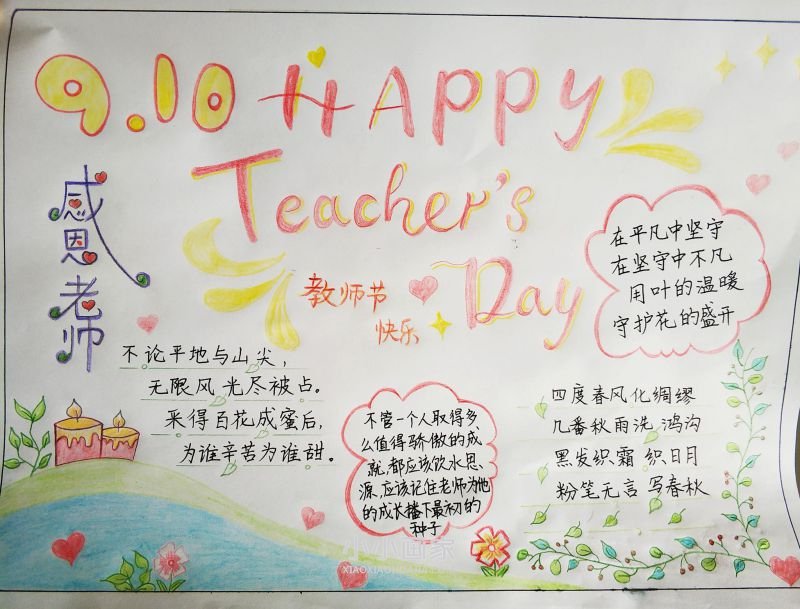 9.10 HAPPY
Teacher's
Day
感恩老师
教师节
快乐
在平凡中坚守
在坚守中不凡
用叶的温暖
守护花的盛开
不论平地与山尖，
无限风光尽被占。
采得百花成蜜后，
为谁辛苦为谁甜。
不管一个人取得多
么值得骄傲的成
就，都应该饮水思
源，应该记住老师为他
的成长播下最初的
种子
四度春风化绸缪
几番秋雨洗鸿沟
黑发织霜 织日月
粉笔无言 写春秋
小小画家